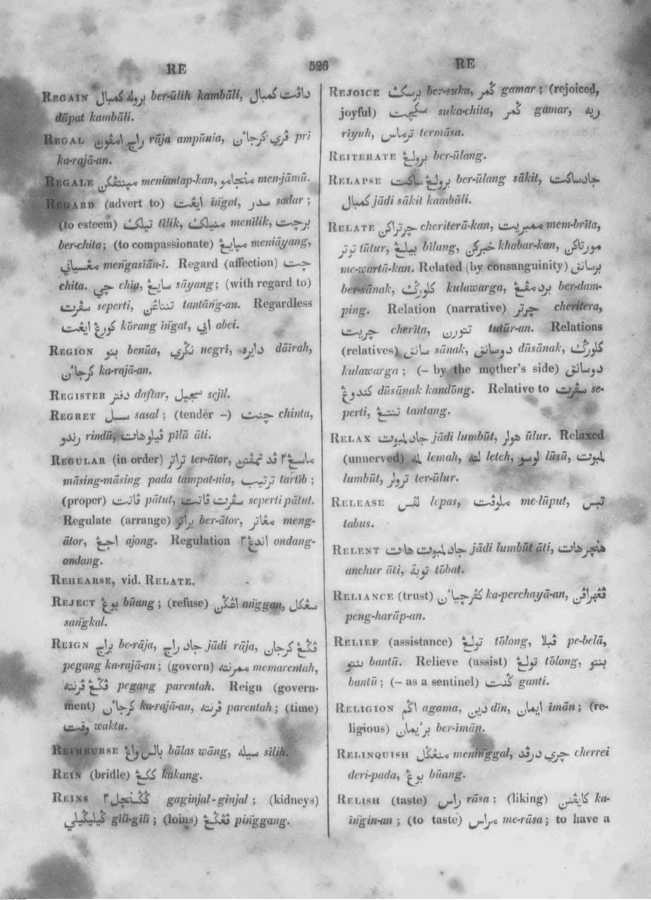 RE
526
RE
REGAIN بروله كمبال ber-ūlih kambāli, داڤت كمبال
dāpat kambāli.
REGAL راج امڤون rāja ampūnia, ڤري كرجاءن pri
ka-rajā-an.
REGALE مينتڤكن meniantap-kan, منجامو men-jāmū.
REGARD (advert to) ايڠت īngat, سدر sadar;
(to esteem) تيلك tīlik, منيلك menīlik, برچت
ber-chita; (to compassionate) ميايڠ meniāyang,
مڠسياني mengasiāni-i. Regard (affection) چت
chita, چي chia, سايڠ sāyang; (with regard to)
سڤرت seperti, تنتاڠن tantāng-an. Regardless
كورڠ ايڠت kōrang īngat, ابي abei.
REGION بنو benūa, نݢري negri, دايره dāïrah,
كرجاءن ka-rajā-an.
REGISTER دفتر daftar, سجيل sejil.
REGRET سسل sasal; (tender –) چنت chinta,
رندو rindū, ڤيلو هات pīlū āti.
REGULAR (in order) تراتر ter-ātor, ماسڠ٢ ڤد تمڤتن
māsing-māsing pada tampat-nia, ترتيب tartīb;
(proper) ڤاتت pātut, سڤرت ڤاتت seperti pātut.
Regulate (arrange) براتر ber-ātor, مڠاتر meng-
ātor, اجڠ ajong. Regulation اندڠ٢ ondang-
ondang.
REHEARSE, vid. RELATE.
REJECT بوڠ būang; (refuse) اڠݢن anggan, سڠكل
sangkal.
REIGN براج be-rāja, جاد راج jādi rāja, ڤݢڠ كرجان
pegang ka-rajā-an; (govern) ممرنته memarentah,
ڤݢڠ ڤرنته pegang parentah. Reign (govern-
ment) كرجاءن ka-rajā-an, ڤرنته parentah; (time)
وقت waktu.
REIMBURSE بالس واڠ bālas wāng, سيله sīlih.
REIN (bridle) ككڠ kakang.
REINS ݢݢنجل٢ gaginjal-ginjal; (kidneys)
ݢيليݢيلي gīlī-gīlī; (loins) ڤڠݢڠ pinggang.
REJOICE برسك ber-suka, ݢمر gamar; (rejoiced,
joyful) سكچت suka-chita, ݢمر gamar, ريه
riyuh, ترماس termāsa.
REITERATE برولڠ ber-ūlang.
RELAPSE برولڠ ساكت ber-ūlang sākit, جاد ساكت
كمبال jādi sākit kambāli.
RELATE چرتراكن cheriterā-kan, ممبريت mem-brīta,
توتر tūtur, بيلڠ bīlang, خبركن khabar-kan, مورتاكن
me-wartā-kan. Related (by consanguinity) برسانق
ber-sānak, كلورݢ kulawarga, بردمڤڠ ber-dam-
ping. Relation (narrative) چرتر cheritera,
چريت cherīta, توترن tutūr-an. Relations
(relatives) سانق sānak, دوسانق dūsānak, كلورݢ
kulawarga; (– by the mother's side) دوسانق
كندوڠ dūsānak kandōng. Relative to سڤرت se-
perti, تنتڠ tantang.
RELAX جاد لمبوت jādi lumbūt, هولر ūlur. Relaxed
(unnerved) لمه lemah, لته leteh, لوسو lūsū, لمبوت
lumbūt, ترولر ter-ūlur.
RELEASE لڤس lepas, ملوڤت me-lūput, تبس
tabus.
RELENT جاد لمبوت هات jādi lumbūt āti, هنچر هات
anchur āti, توبة tōbat.
RELIANCE (trust) كڤرچياءن ka-perchayā-an, ڤڠهراڤن
peng-harāp-an.
RELIEF (assistance) تولڠ tōlong, ڤبلا pe-belā,
بنتو bantū. Relieve (assist) تولڠ tōlong, بنتو
bantū; (– as a sentinel) ݢنت ganti.
RELIGION اݢم agama, دين dīn, ايمان imān; (re-
ligious) برايمان ber-īmān.
RELINQUISH منڠݢل meninggal, چري درڤد cherrei
deri-pada, بوڠ būang.
RELISH (taste) راس rāsa; (liking) كايڠنن ka-
īngin-an; (to taste) مراس me-rāsa; to have a